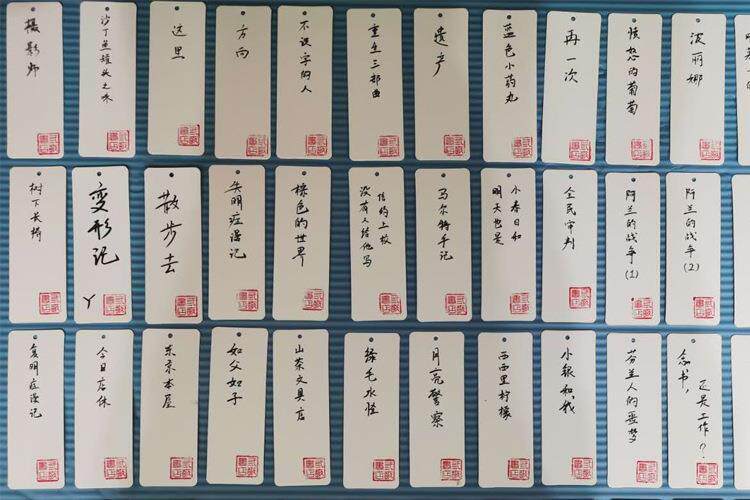 摄影师
沙丁鱼罐头之味
这里
方向
不识字的人
重生三部曲
遗产
蓝色小药丸
再一次
愤怒的葡萄
波丽娜
树下长椅
变形记
Y
散步去
失明症漫记
色的世界
没有人给他写
信的上校
马尔特手记
明天也是
小春日和
全民审判
阿兰的战争(1)
阿兰的战争(2)
复明症漫记
今日店休
东京本屋
如父如子
山茶文具店
绿毛水怪
月亮警察
西西里柠檬
小银和我
芬兰人的噩梦
念书，
还是工作？